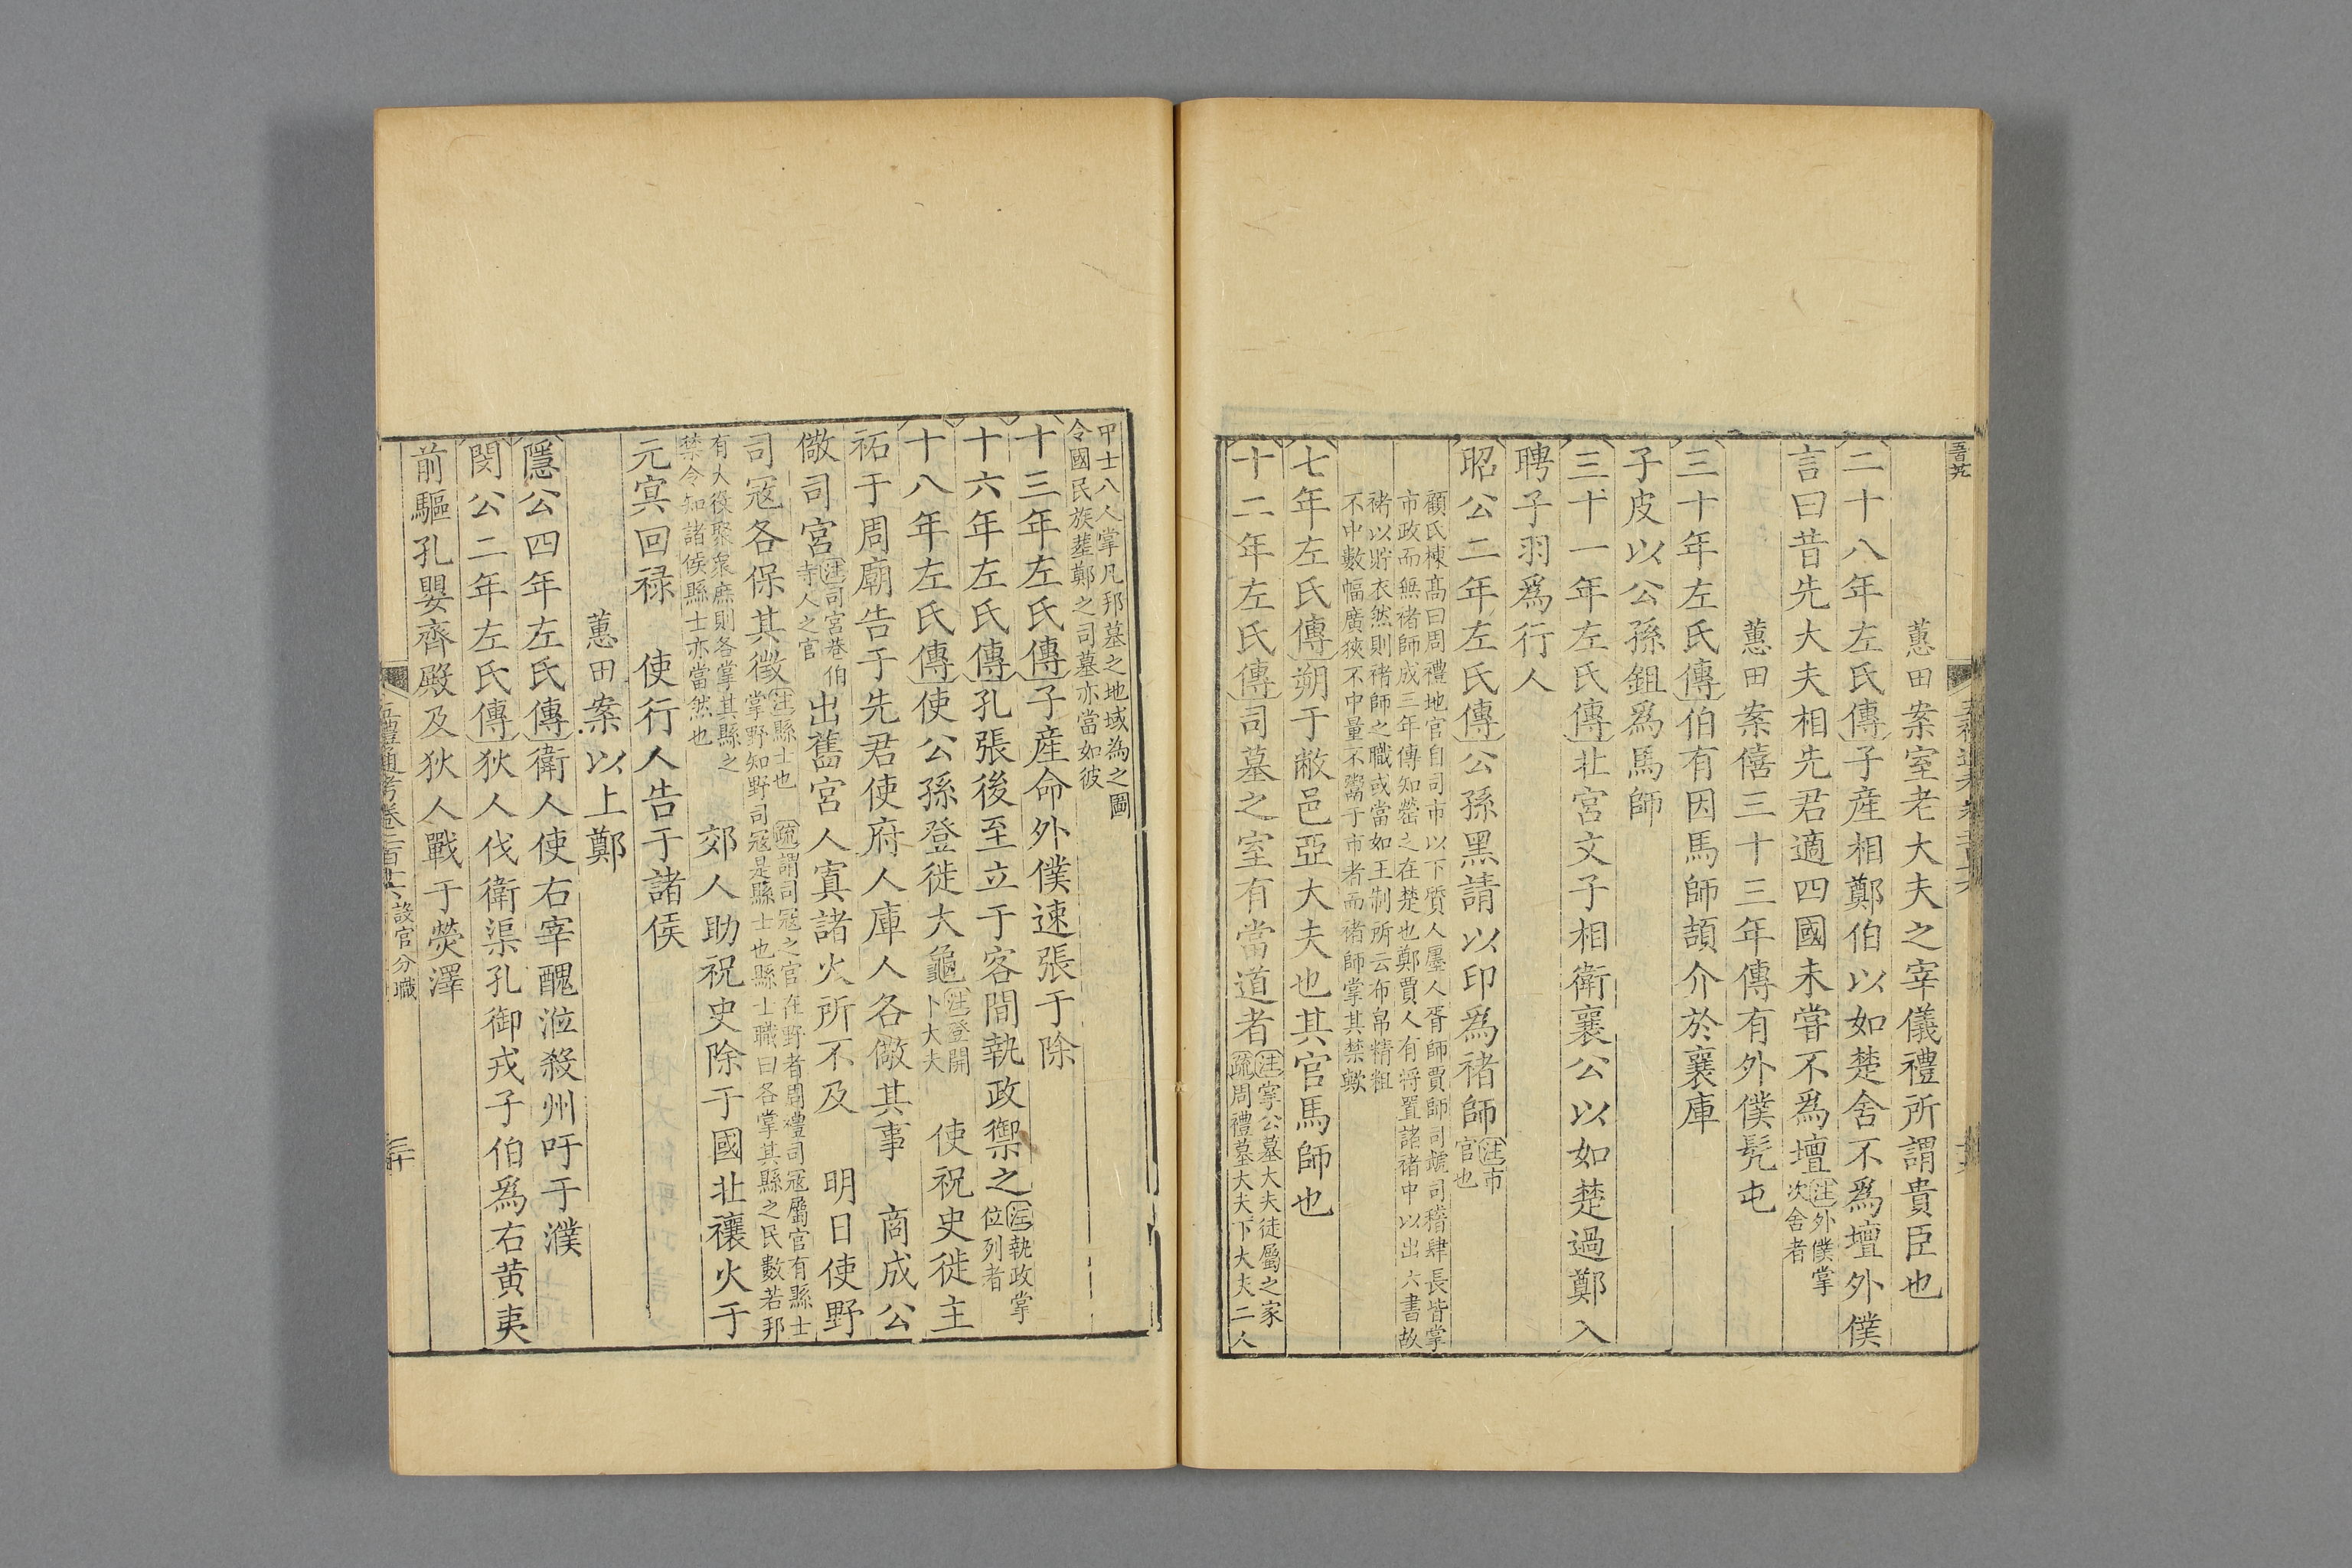 蕙田案室老大夫之宰儀禮所謂貴臣也
二十八年左氏傳子產相鄭伯以如楚舍不爲壇外僕
言曰昔先大夫相先君適四國未嘗不爲壇注外僕掌
次舍者
蕙田案僖三十三年傳有外僕髠屯
三十年左氏傳伯有因馬師頡介於襄庫
子皮以公孫鉏爲馬師
三十一年左氏傳北宮文子相衛襄公以如楚過鄭入
聘子羽爲行人
昭公二年左氏傳公孫黑請以印爲褚師注市
官也
顧氏棟高曰周禮地官自司市以下質人廛人胥師賈師司虣司稽肆長皆掌
市政而無褚師成三年傳知罃之在楚也鄭賈人有將置諸褚中以出六書故
褚以貯衣然則褚師之職或當如王制所云布帛精粗
不中數幅廣狹不中量不鬻于市者而褚師掌其禁歟
七年左氏傳朔于敝邑亞大夫也其官馬師也
十二年左氏傳司墓之室有當道者注掌公墓大夫徒屬之家
疏周禮墓大夫下大夫二人
中士八人掌凡邦墓之地域為之圖
令國民族葬鄭之司墓亦當如彼
十三年左氏傳子產命外僕速張于除
十六年左氏傳孔張後至立于客間執政禦之注執政掌
位列者
十八年左氏傳使公孫登徙大龜注登開
卜大夫
使祝史徙主
祏于周廟告于先君使府人庫人各儆其事　商成公
儆司宮注司宮巷伯
寺人之官
出舊宮人寘諸火所不及　明日使野
司寇各保其徵注縣士也　疏謂司寇之官在野者周禮司寇屬官有縣士
掌野知野司寇是縣士也縣士職曰各掌其縣之民數若邦
有大役聚衆庶則各掌其縣之
禁令知諸侯縣士亦當然也
郊人助祝史除于國北禳火于
元冥回禄　使行人告于諸侯
蕙田案以上鄭
隱公四年左氏傳衛人使右宰醜涖殺州吁于濮
閔公二年左氏傳狄人伐衛渠孔御戎子伯爲右黄夷
前驅孔嬰齊殿及狄人戰于熒澤
五禮通考卷二百十六設官分職
三十